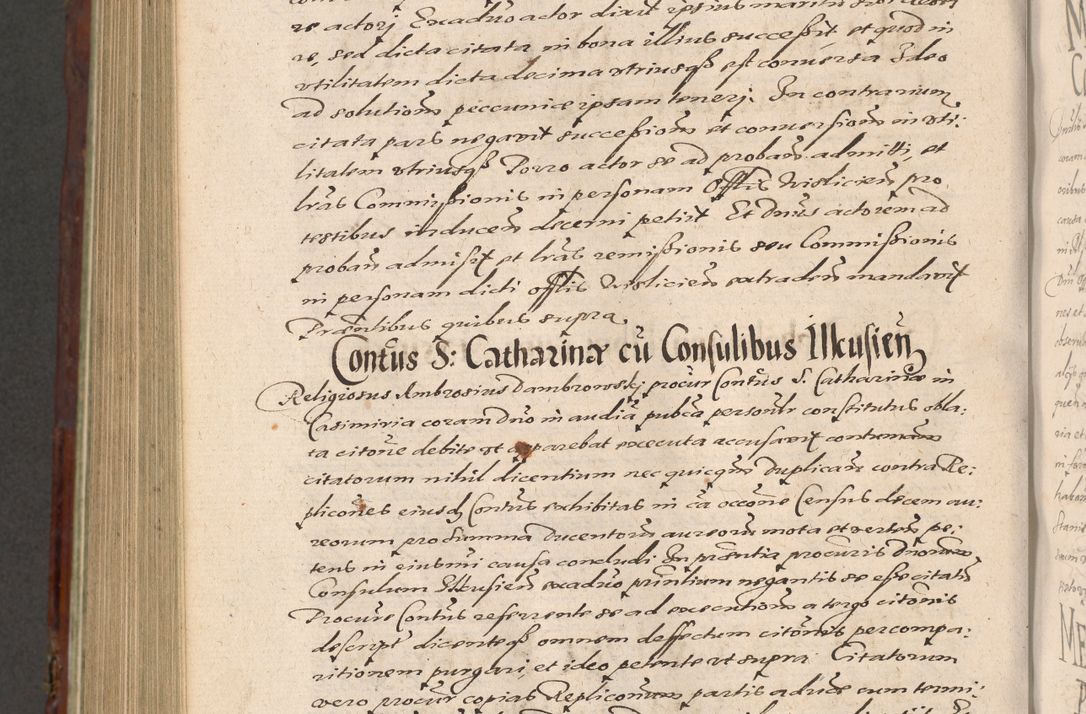 re actorj Exaduo actor dixit ipsius mariti
re, sed dicta citata in bona illius successit, et quod in
vtilitatem dicta decima vtriusqß est conuersa Ideo
ad solutionē peccuniæ ipsam tenerj. In contrarium
citata pars negavit successionē et conuersionē in vti:
litatem vtriusqß Porro actor se ad probanā admitti, et
lrās Commissionis in personam Offlis Visliciēn pro
testibus inducenā decerni petiit Et Dnūs actorem ad
probanā admisit et lrās remissionis seu Commissionis
in personam dicti offlis Visliciēn extradenā mandavit
Præntibus quibus supra.
Contūs S: Catharinæ cū Consulibus Ilkusieñ
Religiosus Ambrosius Dambrowskj procūr Contūs S. Catharinæ in
Casimiria coram dnō in audiā publcā personlr constitutus obla:
ta citōne debite vt apparebat executa accusavit contumam
citatorum nihil dicentium nec quicqm̄ duplicanā contra Re:
plicōnes eiusd Contūs exhibitas in cā occōne Census decem au:
reorum pro summa Ducentorū aureorū mota et verten pe:
tens in eiusmi causa concludi In præntia procuris Dnorum
Consulum Ilkusien exaduo printium negantis se esse citatū
Procure Contūs referrente se ad executionē a tergo citōnis
descript dicenteqß omnem deffectum citōnis per compa:
ritionem purgari, et ideo petente vt supra Citatorum
vero procur copias Repliconum partis aduæ cum termi: